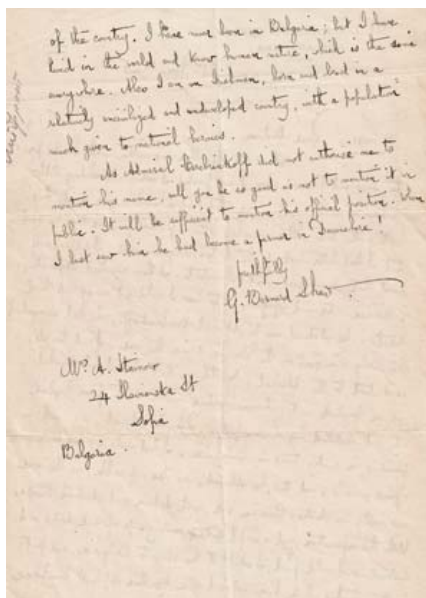 of the country. I have never been in Bulgaria; but I have
lived in the world and know human nature, which is the same
everywhere. Also I am an Irishman, born and bred in a
relatively uncivilized and undeveloped country, with a population
much given to natural heroics.
As Admiral did not authorise me to
mention his name, will you be so good as not to mention it in
public. It will be sufficient to mention his official position. When
I last saw him he had become a farmer in
faithfully
G. Bernard Shaw
Mr. A.
24 St
Sofia
Bulgaria.